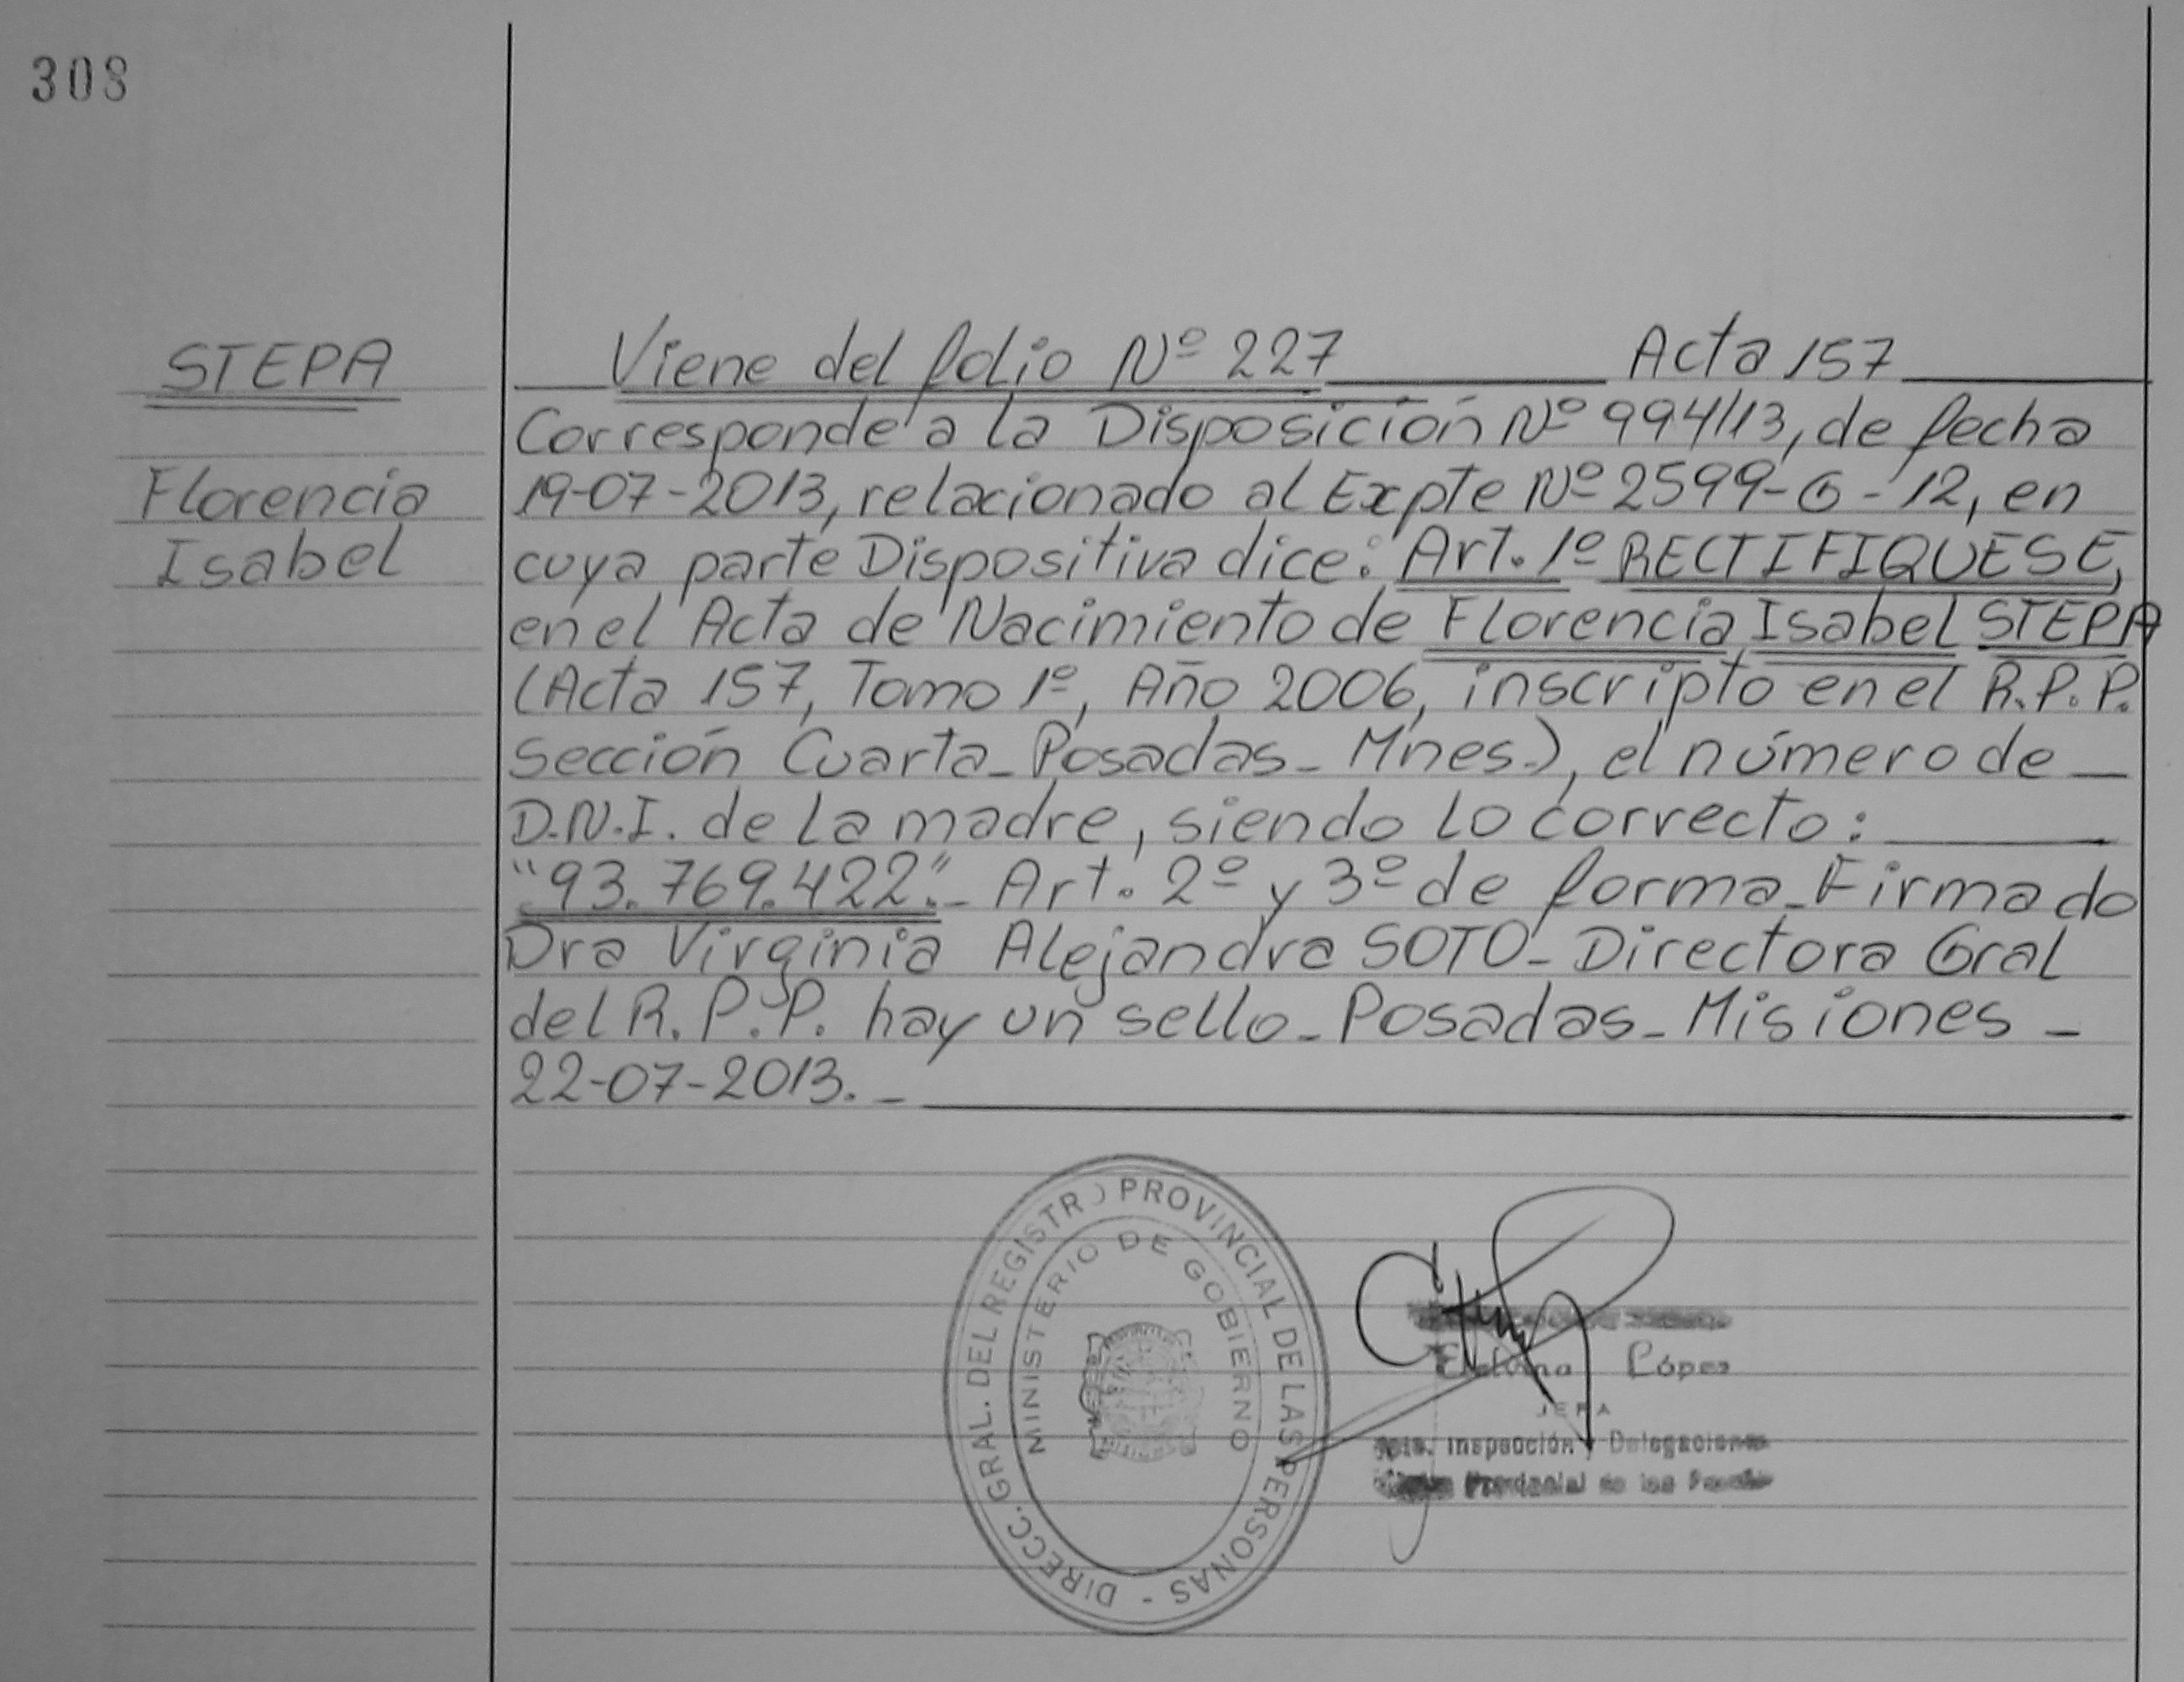 308
STEPA
Florencia
Isabel
Viene del folio Nº 227 Acta 157
Corresponde a la Disposición Nº 994/13, de fecha
19-07-2013, relacionado al Expte Nº 2599-G-12, en
cuya parte Dispositiva dice: Art. 1º RECTIFIQUESE,
en el Acta de Nacimiento de Florencia Isabel STEPA
(Acta 157, Tomo 1º, Año 2006, inscripto en el R.P.P.
Sección Cuarta_Posadas_Mnes.), el número de _
D.N.I. de la madre, siendo lo correcto:
"93.769.422"._ Art. 2º y 3º de forma_Firmado
Dra Virginia Alejandra SOTO_Directora Gral
del R.P.P. hay un sello_Posadas_Misiones _
22-07-2013._
DIRECC. GRAL. DEL REGISTRO PROVINCIAL DE LAS PERSONAS -
MINISTERIO DE GOBIERNO
López
JEFA
Dpto. Inspección y Delegaciones
Provincial de las